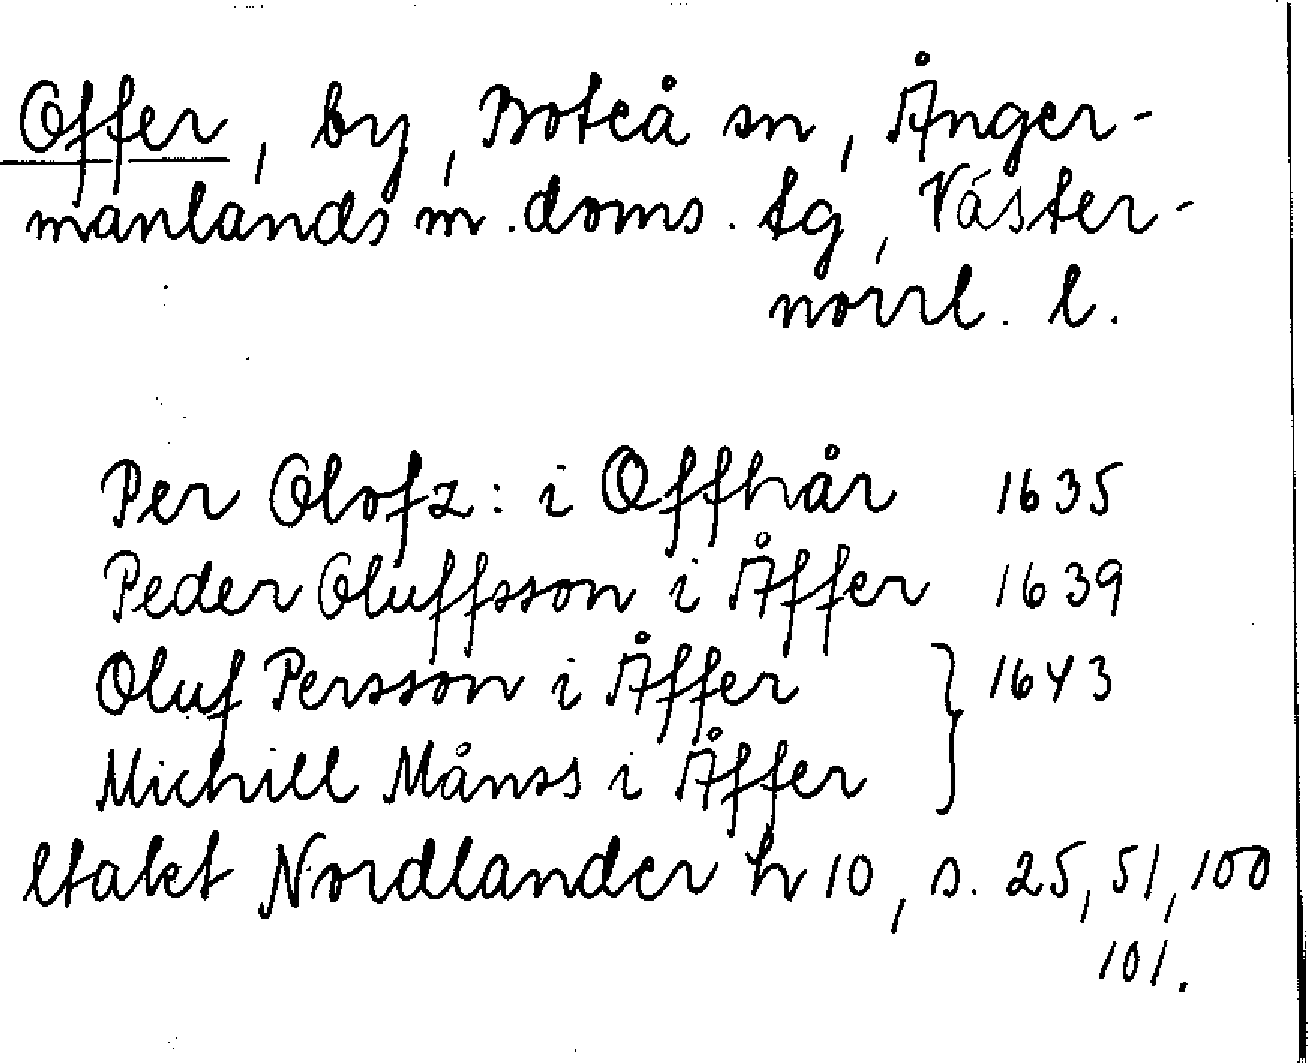 Offer, by, Boteå sn, Ånger-
manlands m. doms. tg, Väster-
norrl. l.
Per Olofz: i Offhår 1635
Peder Oluffsson i Åffer 1639
Oluf Persson i Åffer } 1643
Michill Månss i Åffer
ltakt Nordlander h 10, s. 25, 51, 100
101.